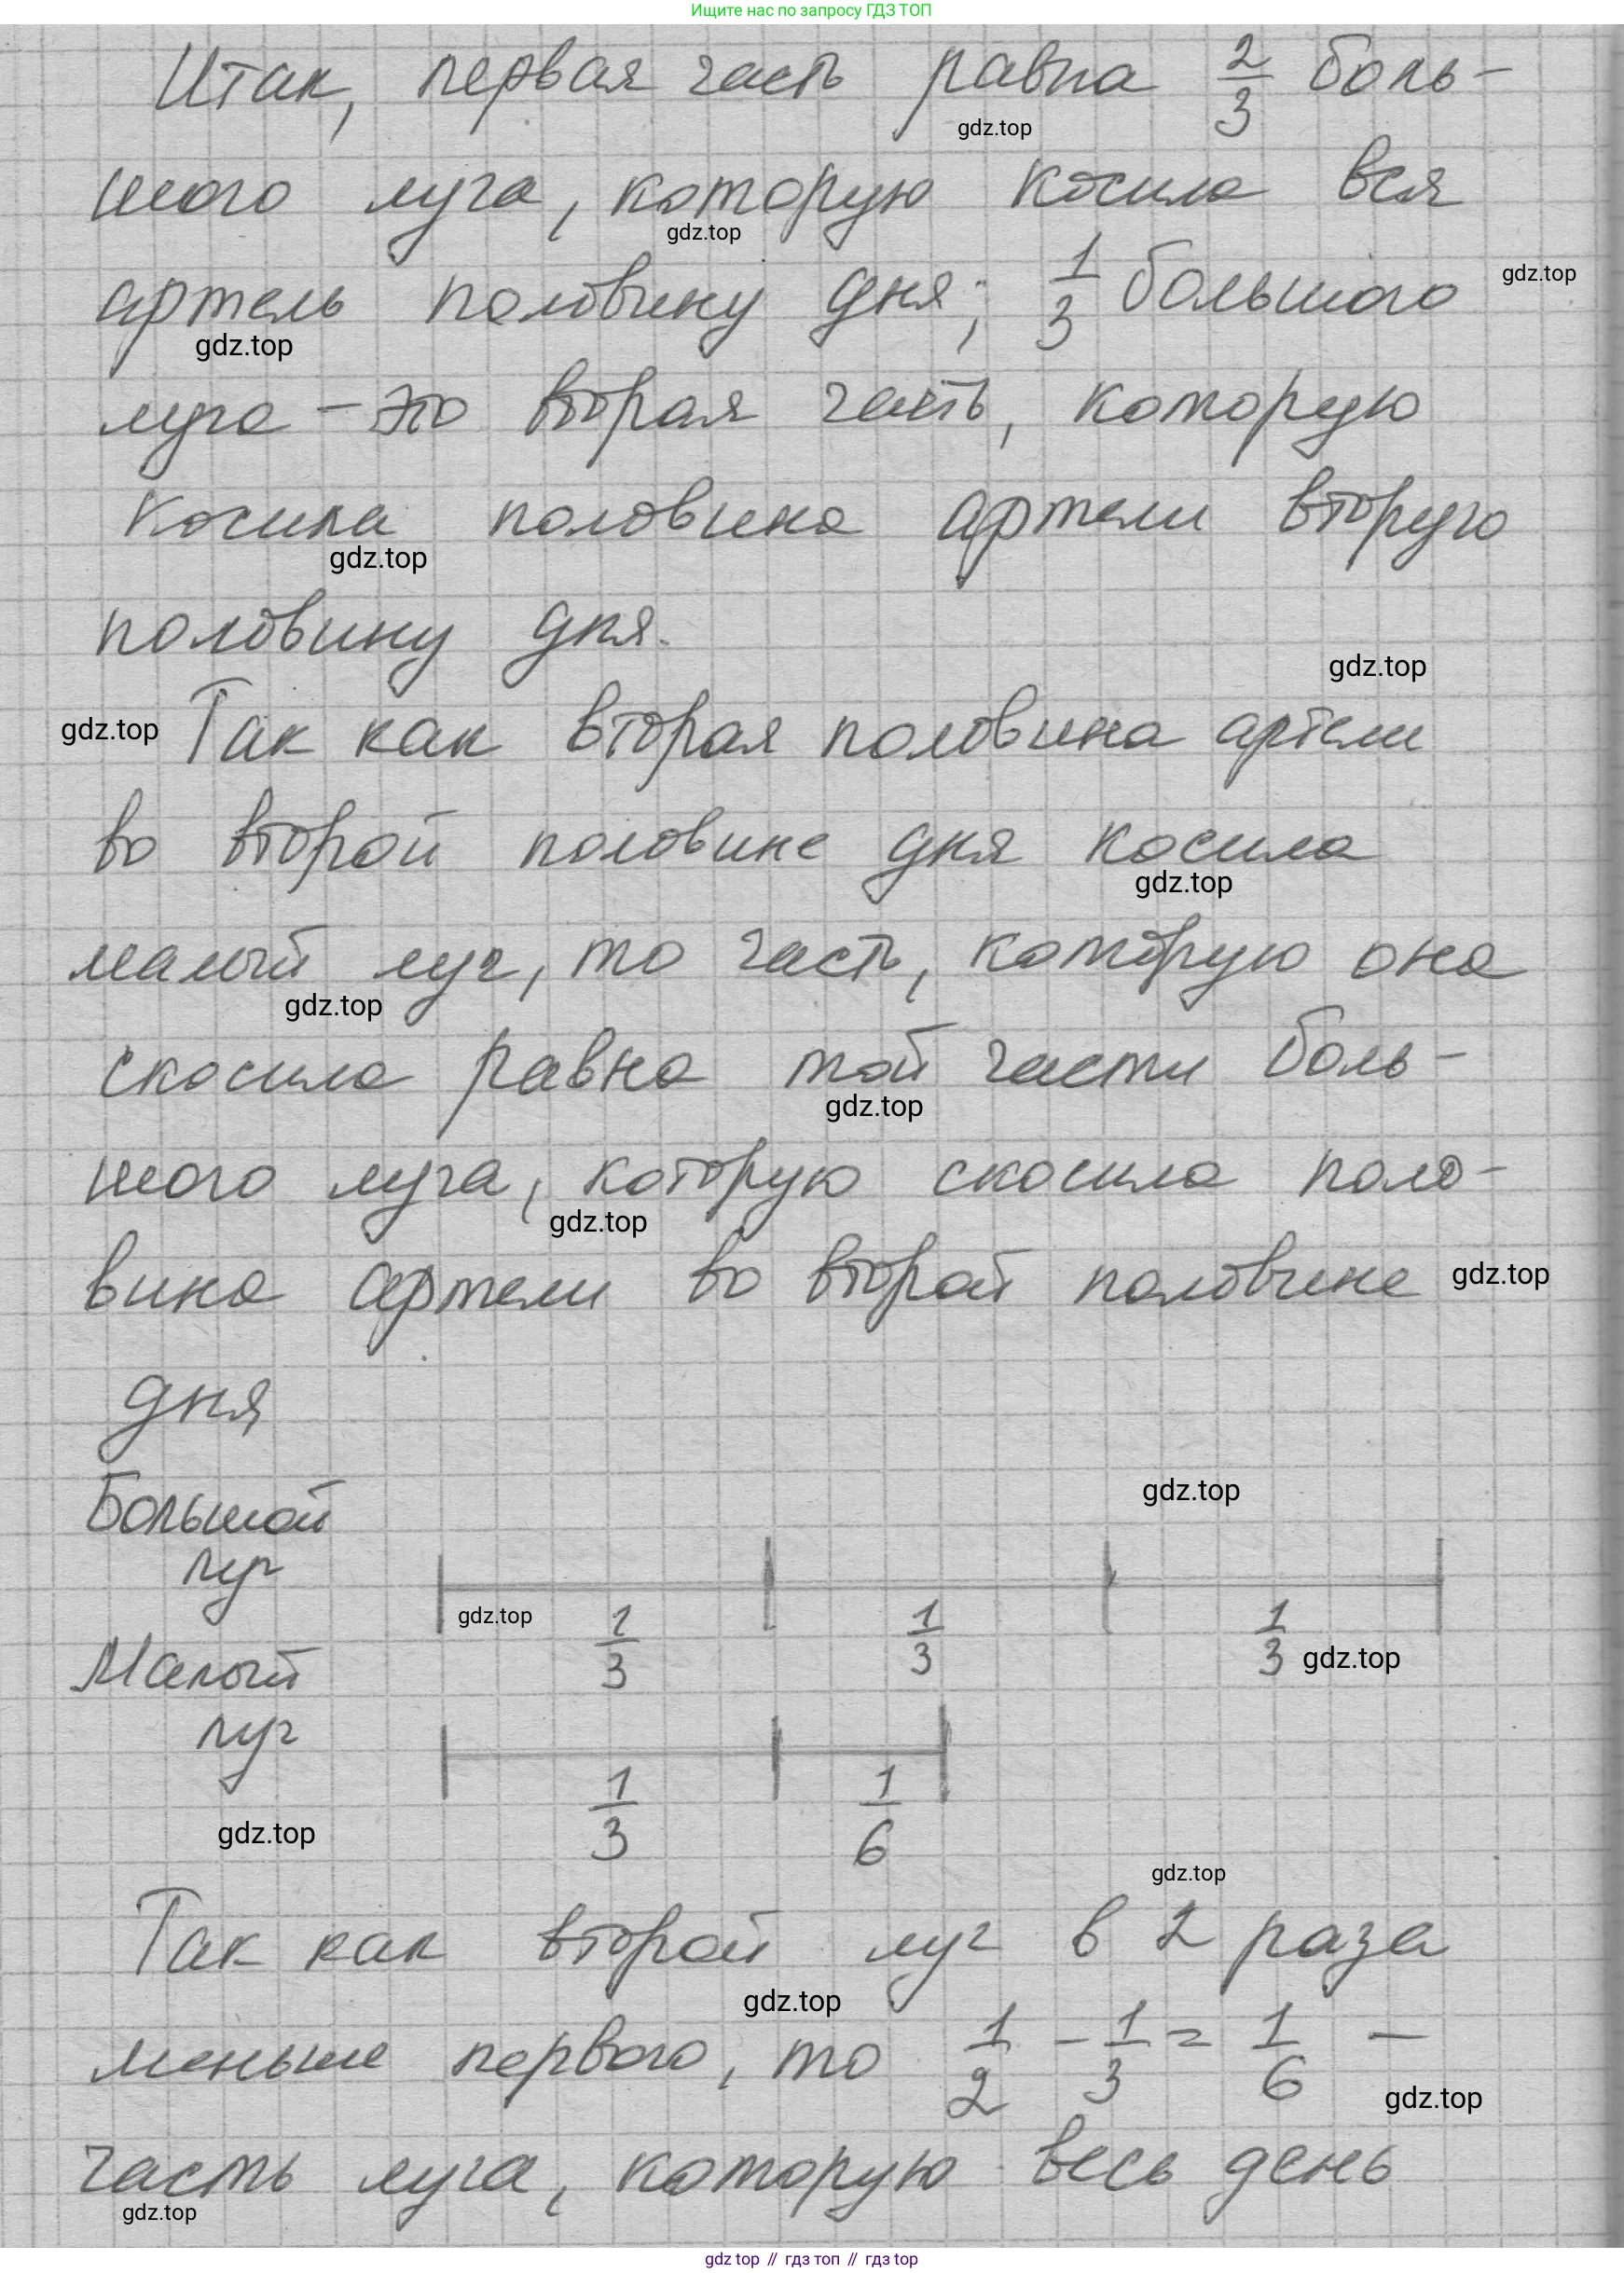 Ищите нас по запросу ГДЗ ТОП
Итак, первая часть равна 2/3 боль-
gdz.top
шого луга, которую косила вся
gdz.top
артель половину дня; 1/3 большого
gdz.top
gdz.top
луга – это вторая часть, которую
косила половина артели вторую
gdz.top
половину дня.
gdz.top
gdz.top
Так как вторая половина артели
во второй половине дня косила
gdz.top
малый луг, то часть, которую она
gdz.top
скосила равна той части боль-
gdz.top
шого луга, которую скосила поло-
gdz.top
вина артели во второй половине
gdz.top
дня
Большой
луг
gdz.top
gdz.top
1/3 1/3 1/3
gdz.top
Малый
луг
1/3 1/6
gdz.top
gdz.top
Так как второй луг в 2 раза
gdz.top
меньше первого, то 1/2 - 1/3 = 1/6 –
gdz.top
часть луга, которую весь день
gdz.top
gdz top // гдз топ // гдз top